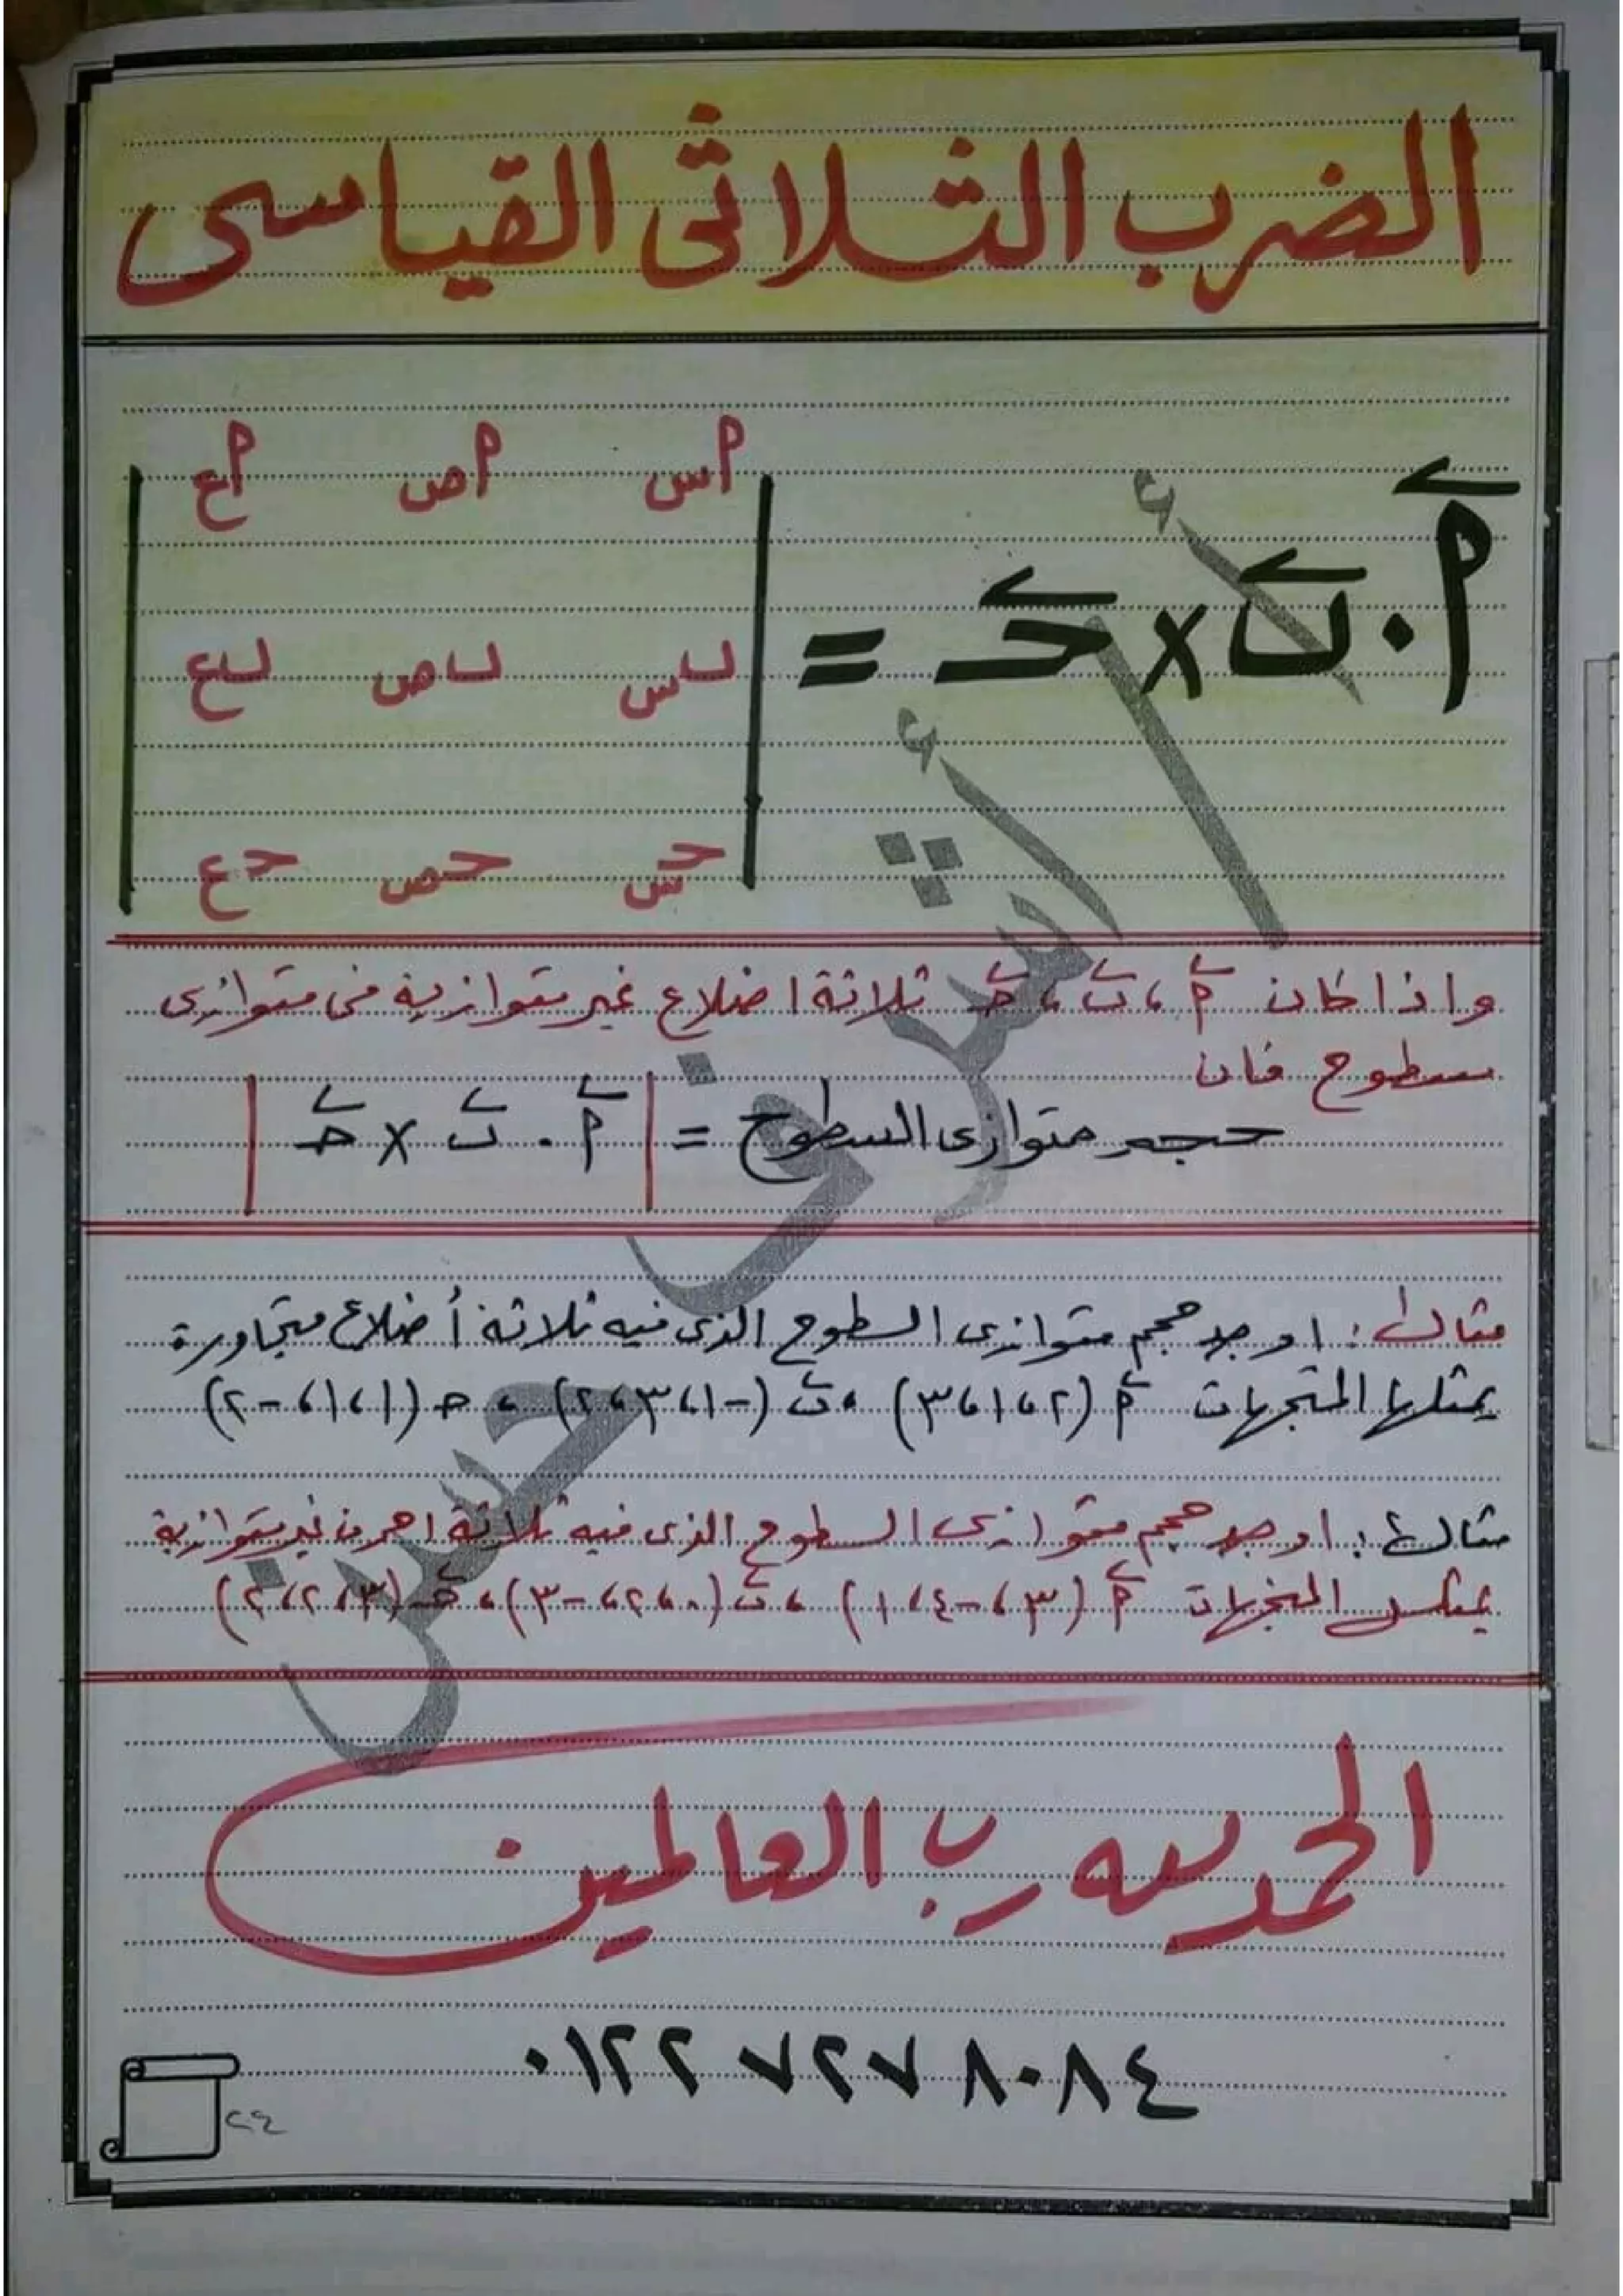 الضرب الثلاثى القياسى
أ . ب × جـ =
أس أص أع
بس بص بع
جـس جـص جـع
واذا كان أ ، ب ، جـ ثلاثة اضلاع غير متوازية فى متوازى
سطوح فان
حجم متوازى السطوح = | أ . ب × جـ |
مثال : اوجد حجم متوازى السطوح الذى فيه ثلاثة أضلاع متجاورة
يمثلها المتجهات أ (٢ ، ١ ، ٣) ، ب (-١ ، ٣ ، ٢) ، جـ (١ ، ١ ، -٢)
مثال : اوجد حجم متوازى السطوح الذى فيه ثلاثة احرف غير متوازية
المتجهات أ (٣ ، -٤ ، ١) ، ب (٠ ، ٢ ، -٣) ، جـ (٣ ، ٢ ، ٢)
الحمد لله رب العالمين
٠١٢٢ ٧٢٧ ٨٠٨٤
أ / أشرف حسن